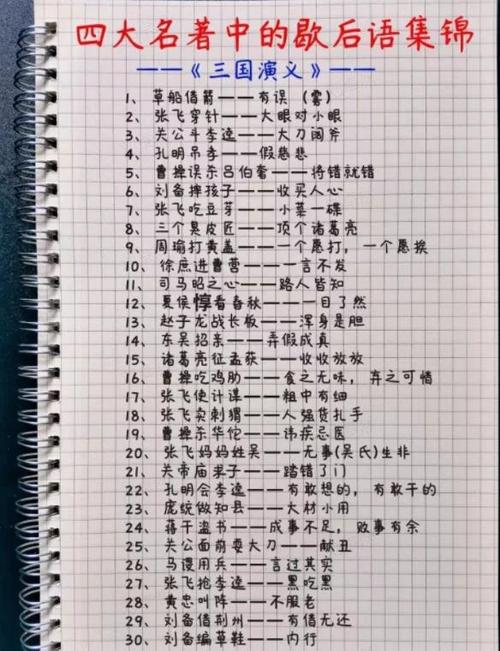 四大名著中的歇后语集锦
——《三国演义》——
1、草船借箭——有误（雾）
2、张飞穿针——大眼对小眼
3、关公斗李逵——大刀阔斧
4、孔明吊孝——假慈悲
5、曹操误杀吕伯奢——将错就错
6、刘备摔孩子——收买人心
7、张飞吃豆芽——小菜一碟
8、三个臭皮匠——顶个诸葛亮
9、周瑜打黄盖——一个愿打，一个愿挨
10、徐庶进曹营——一言不发
11、司马昭之心——路人皆知
12、夏侯惇看春秋——一目了然
13、赵子龙战长板——浑身是胆
14、东吴招亲——弄假成真
15、诸葛亮征孟获——收收放放
16、曹操吃鸡肋——食之无味，弃之可惜
17、张飞使计谋——粗中有细
18、张飞卖刺猬——人强货扎手
19、曹操杀华佗——讳疾忌医
20、张飞妈妈姓吴——无事(吴氏)生非
21、关帝庙求子——踏错了门
22、孔明会李逵——有敢想的，有敢干的
23、庞统做知县——大材小用
24、蒋干盗书——成事不足，败事有余
25、关公面前耍大刀——献丑
26、马谡用兵——言过其实
27、张飞抢李逵——黑吃黑
28、黄忠叫阵——不服老
29、刘备借荆州——有借无还
30、刘备编草鞋——内行